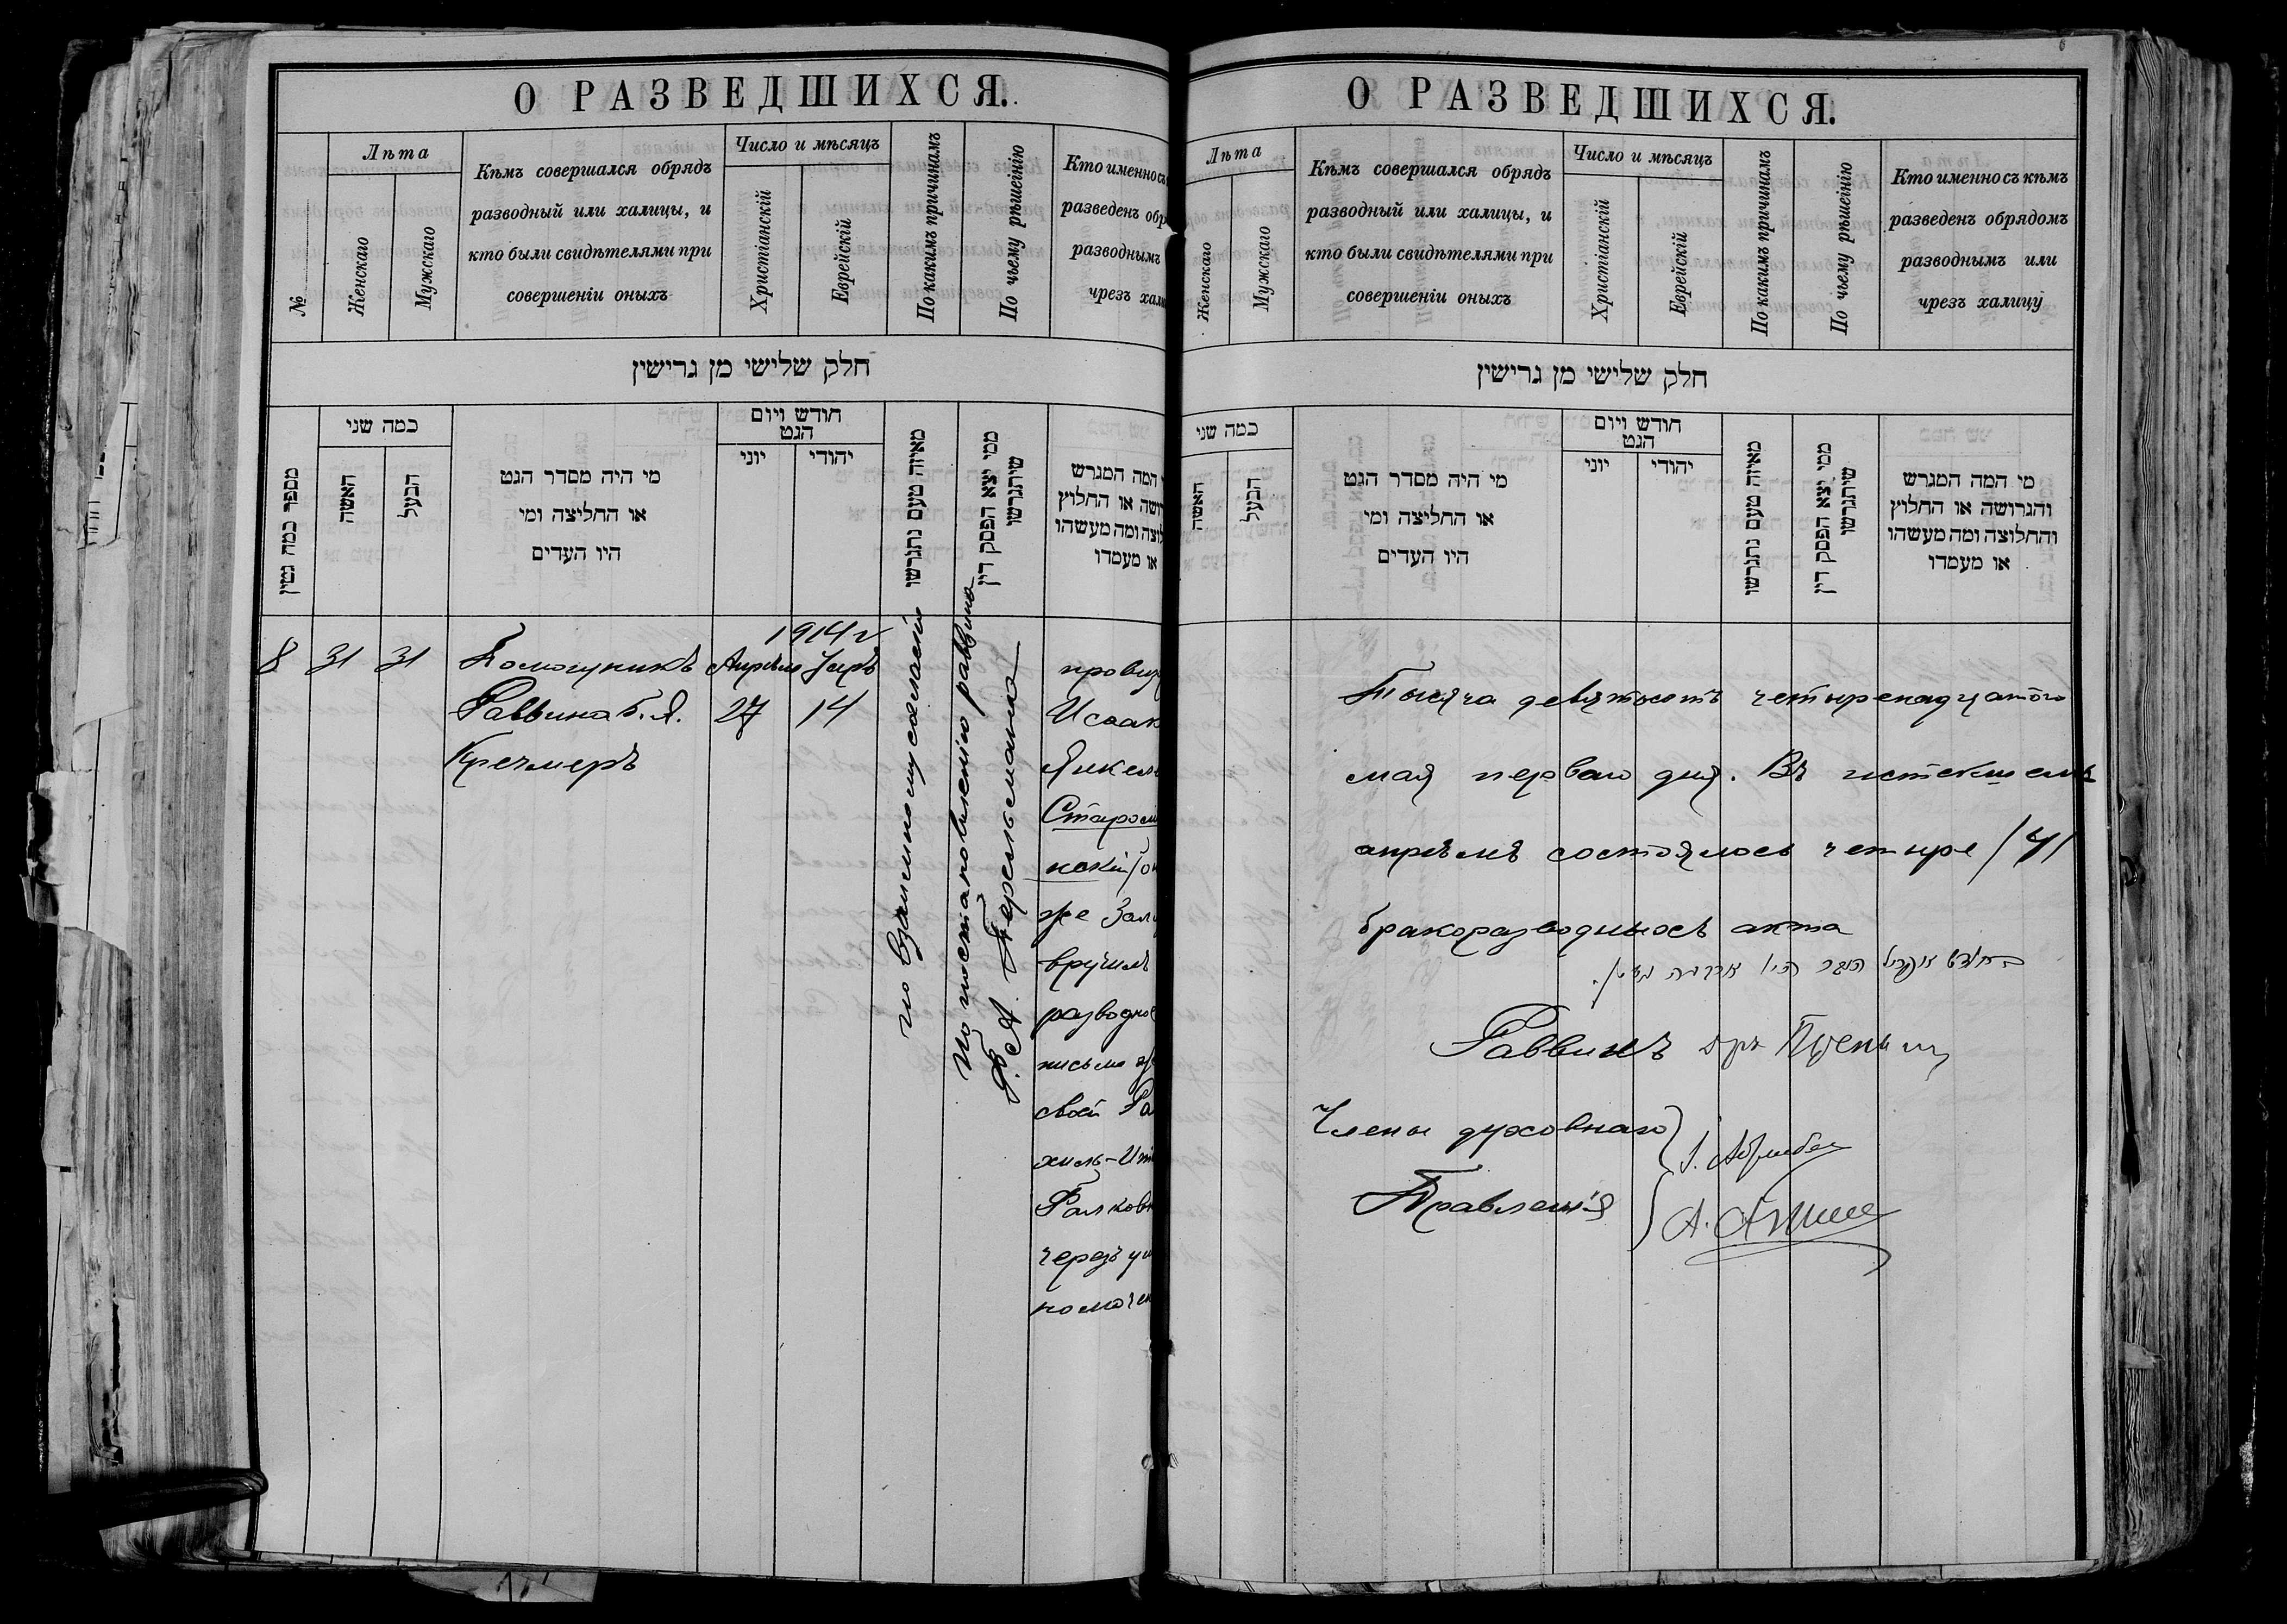 О РАЗВЕДШИХСЯ.
№
Лѣта
Женскаго
Мужскаго
Кѣмъ совершался обрядъ
разводный или халицы, и
кто были свидѣтелями при
совершеніи оныхъ
Число и мѣсяцъ
Христіанскій
Еврейскій
По какимъ причинамъ
По чьему рѣшенію
Кто именно съ
разведенъ обр
разводнымъ
чрезъ хали
חלק שלישי מן גרישין
מספר כמה גטין
כמה שני
האשה
הבעל
מי היה מסדר הגט
או החליצה ומי
היו העדים
חודש ויום
הגט
יוני
יהודי
מאיזה טעם נתגרשו
ממי יצא הפסק דין
שיתגרשו
המה המגרש
רושה או החלוץ
לוצה ומה מעשהו
או מעמדו
8
31
31
Помощникъ
Раввина Б. Я.
Кречмеръ
1914 г
Апрѣля Іаръ
27 14
по взаимному согласію
По постановленію раввина
А. Перельмана
провиз
Исаак
Янкель
Старосел
нскій/он
же Зал
вручилъ
разводное
письмо
своей Ра
хиль-Ит
Фалковн
черезъ уп
номочен
О РАЗВЕДШИХСЯ.
Лѣта
Женскаго
Мужскаго
Кѣмъ совершался обрядъ
разводный или халицы, и
кто были свидѣтелями при
совершеніи оныхъ
Число и мѣсяцъ
Христіанскій
Еврейскій
По какимъ причинамъ
По чьему рѣшенію
Кто именно съ кѣмъ
разведенъ обрядомъ
разводнымъ или
чрезъ халицу
חלק שלישי מן גרישין
כמה שני
האשה
הבעל
מי היה מסדר הגט
או החליצה ומי
היו העדים
חודש ויום
הגט
יוני
יהודי
מאיזה טעם נתגרשו
ממי יצא הפסק דין
שיתגרשו
מי המה המגרש
והגרושה או החלוץ
והחלוצה ומה מעשהו
או מעמדו
Тысяча девятьсотъ четырнадцатого
мая перваго дня. Въ истекшемъ
апрѣлѣ состоялось четыре /4/
бракоразводныхъ акта
Раввинъ
Члены духовнаго
Правленія